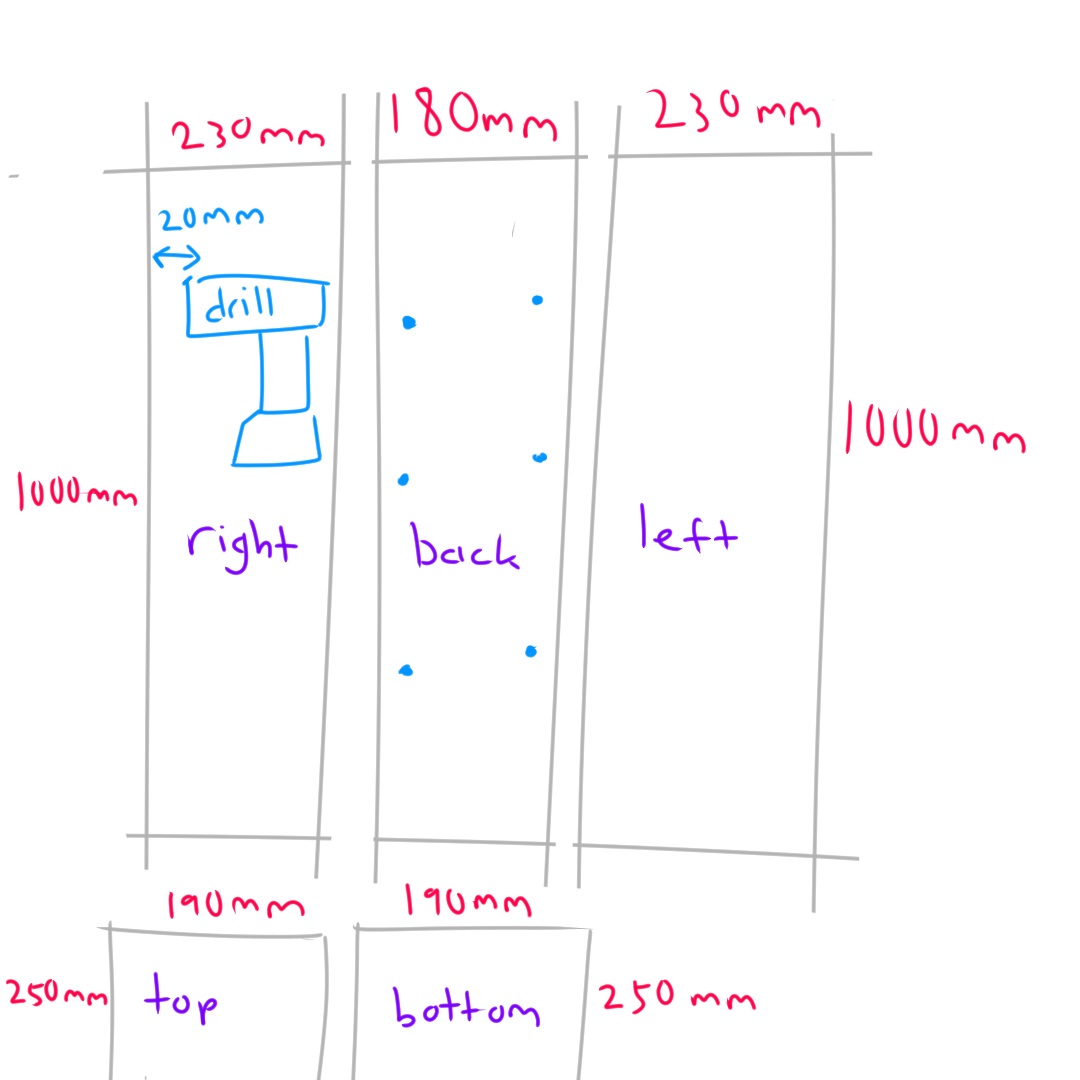 230mm
180mm
230mm
20mm
drill
1000mm
1000mm
right
back
left
190mm
190mm
250mm
top
bottom
250mm